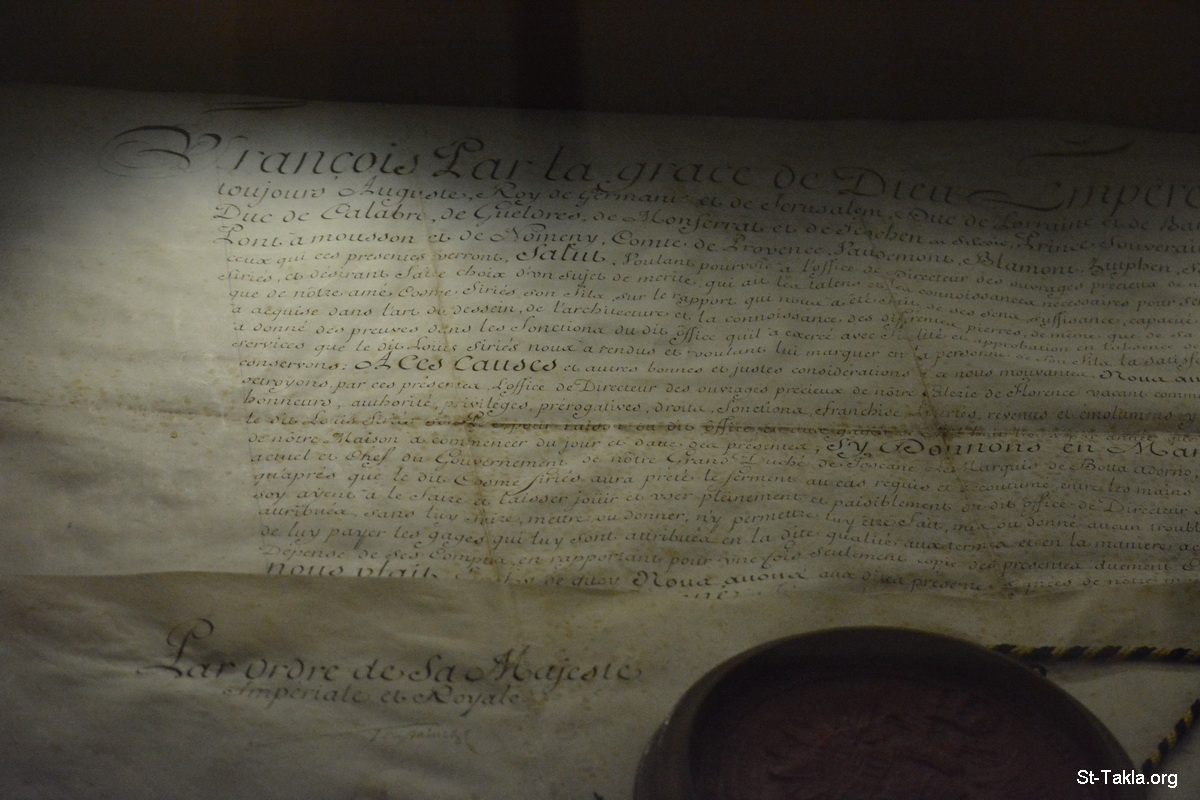 François Par la grace de Dieu Empere
toujours Auguste, Roy de Germanie et de Jerusalem, Duc de Lorraine et de Bar
Duc de Calabre, de Gueldres, de Monferrat et de Teschen en Silesie, Prince Souverai
Pont à mousson et de Nomeny, Comte de Provence, Vaudemont, Blamont, Zutphen, S
ceux qui ces presentes verront, Salut. Voulant pourvoir à l'office de Directeur des ouvrages precieux de
Siriés, et désirant faire choix d'un sujet de merite, qui ait les talens et les connoissances nécessaires pour
que de nôtre amé Cosme Siriés son fils sur le rapport qui nous a été fait de ses sens, suffisance, capacité
a acquise dans l'art du dessein, de l'architecture et la connoissance des diferentes pierres, de même que de sa
a donné des preuves dans les fonctions du dit office qu'il a exercé avec et approbation en l'absence
services que le dit Louis Siriés nous a rendus et voulant lui marquer en la personne de son fils la satisf
conservons: A Ces Causes et autres bonnes et justes considerations à ce nous mouvantes Nous av
octroyons par ces présentes l'office de Directeur des ouvrages précieux de nôtre Galerie de Florence vacant comm
honneurs, authorité, privileges, prérogatives, droits, fonctions, franchises, libertés, revenus et émolumens y
le dit Louis Siriés du dit office
de nôtre Maison à commencer du jour et datte des présentes, Sy Donnons en Man
actuel et Chef du Gouvernement de nôtre Grand Duché de Toscane Le Marquis de Botta adorno
qu'après que le dit Cosme Siriés aura preté le serment au cas requis et accoutumé entre les mains
soy ayent à le faire et laisser jouir et user pleinement et paisiblement du dit office de Directeur
attribués, sans luy faire, mettre ou donner, n'y permettre luy être fait, mis ou donné aucun troubl
de luy payer les gages qui luy sont attribués en la dite qualité aux termes et en la maniere
Dépense de ses Comptes en rapportant pour une fois seulement copie des presentes duement
nous plait. de quoy Nous avons aux dites presentes de notre
Par ordre de Sa Majeste
Imperiale et Royale
St-Takla.org